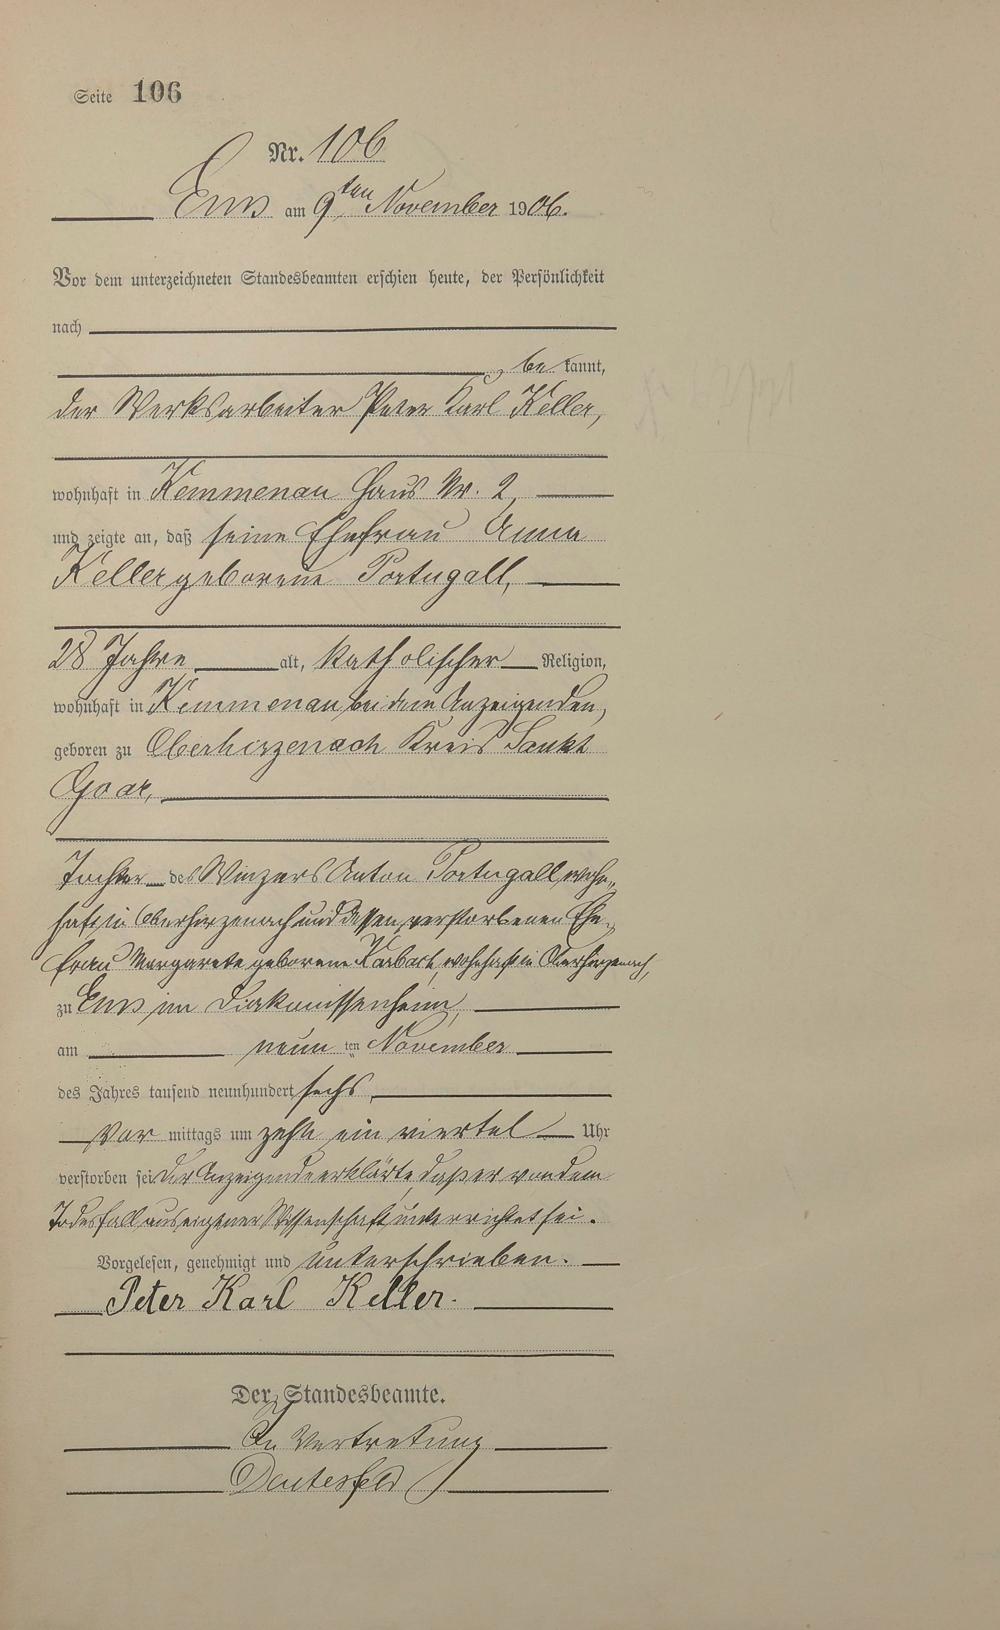 Seite 106
Nr. 106
Ems am 9ten November 1906.
Vor dem unterzeichneten Standesbeamten erschien heute, der Persönlichkeit
nach
be kannt,
der Werksarbeiter Peter Karl Keller,
wohnhaft in Kemmenau Haus Nr. 2,
und zeigte an, daß seine Ehefrau Anna
Keller geborene Portugall,
28 Jahre alt, katholischer Religion,
wohnhaft in Kemmenau bei dem Anzeigenden,
geboren zu Oberhirzenach Kreis Sankt
Goar,
Tochter des Winzers Anton Portugall wohn„
haft in Oberhirzenach und dessen verstorbenen Ehe„
frau Margareta geborene Karbach, wohnhaft in Oberhirzenach,
zu Ems im Diakonissenheim,
am neun ten November
des Jahres tausend neunhundert sechs,
Vor mittags um zehn ein viertel Uhr
verstorben sei Der Anzeigende erklärte, daß er von dem
Todesfall aus eigener Wissenschaft unterrichtet sei.
Vorgelesen, genehmigt und unterschrieben.
Peter Karl Keller.
Der Standesbeamte.
In Vertretung